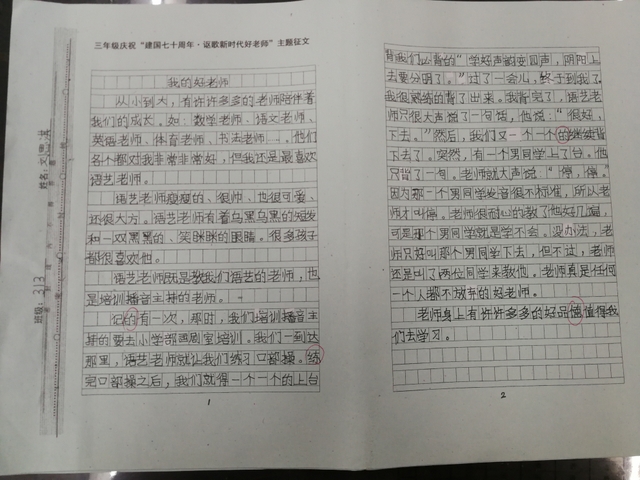 三年级庆祝“建国七十周年·讴歌新时代好老师”主题征文
我的好老师
从小到大，有许许多多的老师陪伴着
我们的成长。如：数学老师、语文老师、
英语老师、体育老师、书法老师……他们
各个都对我非常非常好，但我还是最喜欢
语艺老师。
语艺老师瘦瘦的、很帅、也很可爱、
还很大方。语艺老师有着乌黑乌黑的短发
和一双黑黑的、笑眯眯的眼睛。很多孩子
都很喜欢他。
语艺老师既是教我们语艺的老师，也
是培训播音主持的老师。
记的有一次，那时，我们培训播音主
持的要去小学部画剧室培训。我们一到达
那里，语艺老师就让我们练习口部操。练
完口部操之后，我们就得一个一个的上台
1
班级：313
姓名：
背我们必背的“学好声韵变四声，阴阳上
去要分明了。”过了一会儿，终于到我了。
我很熟练的背了出来。我背完了，语艺老
师只很大声饿了一句话，他说：“很好，
下去。”然后，我们又一个一个的继续背
下去了。突然，有一个男同学上了台。他
只背了一句。老师就大声说：“停，停。”
因为那一个男同学发音很不标准，所以老
师才叫停。老师很耐心的教了他好几遍，
可是那个男同学就是学不会。没办法，老
师只好叫那个男同学下去，但不过，老师
还是叫了两位同学来教他。老师真是任何
一个人都不放弃的好老师。
老师身上有许许多多的好品值值得我
们去学习。
2